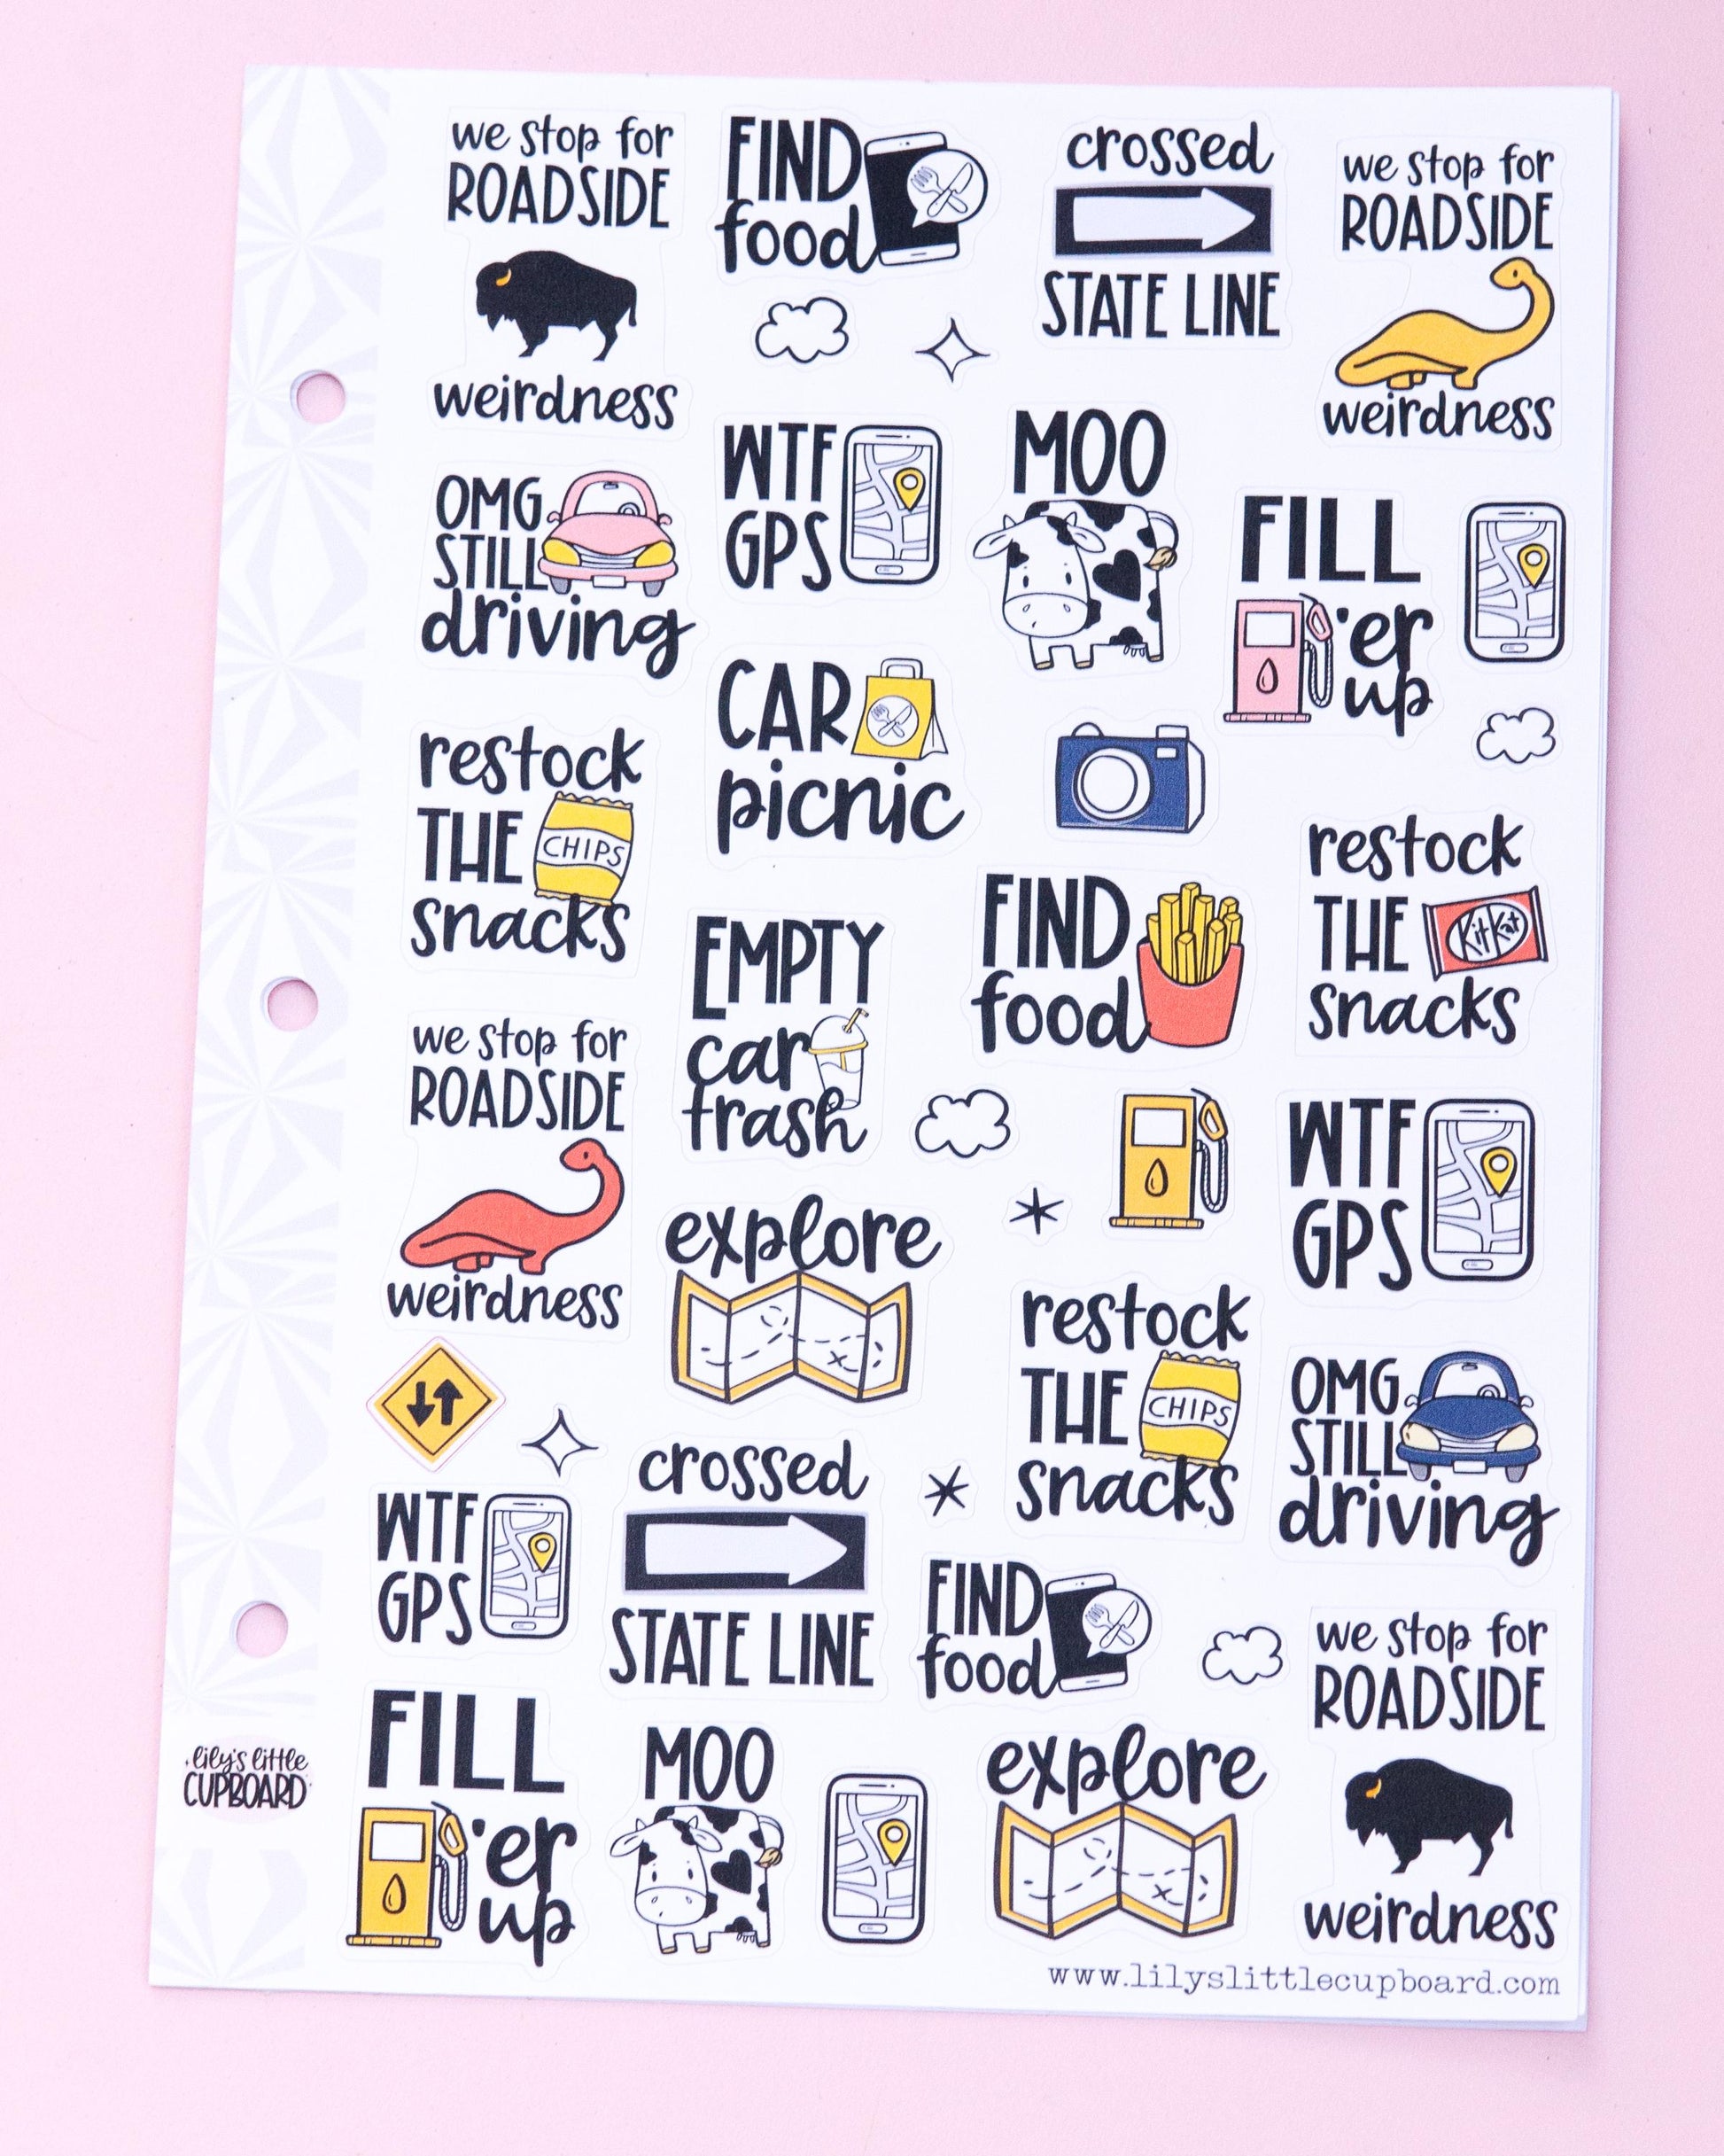 we stop for
ROADSIDE
weirdness
FIND
food
crossed
STATE LINE
we stop for
ROADSIDE
weirdness
OMG
STILL
driving
WTF
GPS
MOO
FILL
'er
up
restock
THE
CHIPS
snacks
CAR
picnic
restock
THE
KitKat
snacks
EMPTY
car
trash
FIND
food
we stop for
ROADSIDE
weirdness
explore
WTF
GPS
restock
THE
CHIPS
snacks
OMG
STILL
driving
WTF
GPS
crossed
STATE LINE
FIND
food
we stop for
ROADSIDE
weirdness
FILL
'er
up
MOO
explore
lily's little
CUPBOARD
www.lilyslittlecupboard.com